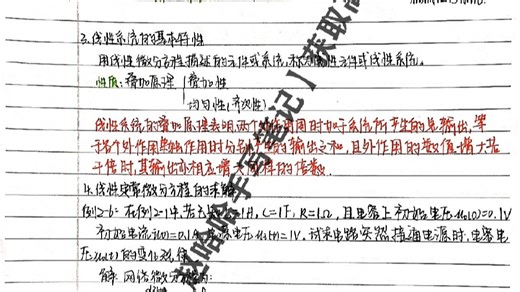 3.线性系统的基本特性
用线性微分方程描述的元件或系统,称为线性元件或线性系统。
性质:叠加原理 叠加性
均匀性(齐次性)
线性系统的叠加原理表明,两个外作用同时加于系统所产生的总输出,等
于各个外作用单独作用时分别产生的输出之和,且外作用的数值增大若
干倍时,其输出亦相应增大同样的倍数.
4.线性定常微分方程的求解
例2-6:在例2-1中,若已知L=1H,C=1F,R=1Ω,且电容上初始电压u₀(0)=0.1V
初始电流i(0)=0.1A,电源电压uᵢ(t)=1V.试求电路突然接通电源时,电容电
压u₀(t)的变化规律
解:网络微分方程为:
赵哈哈手写笔记】获取